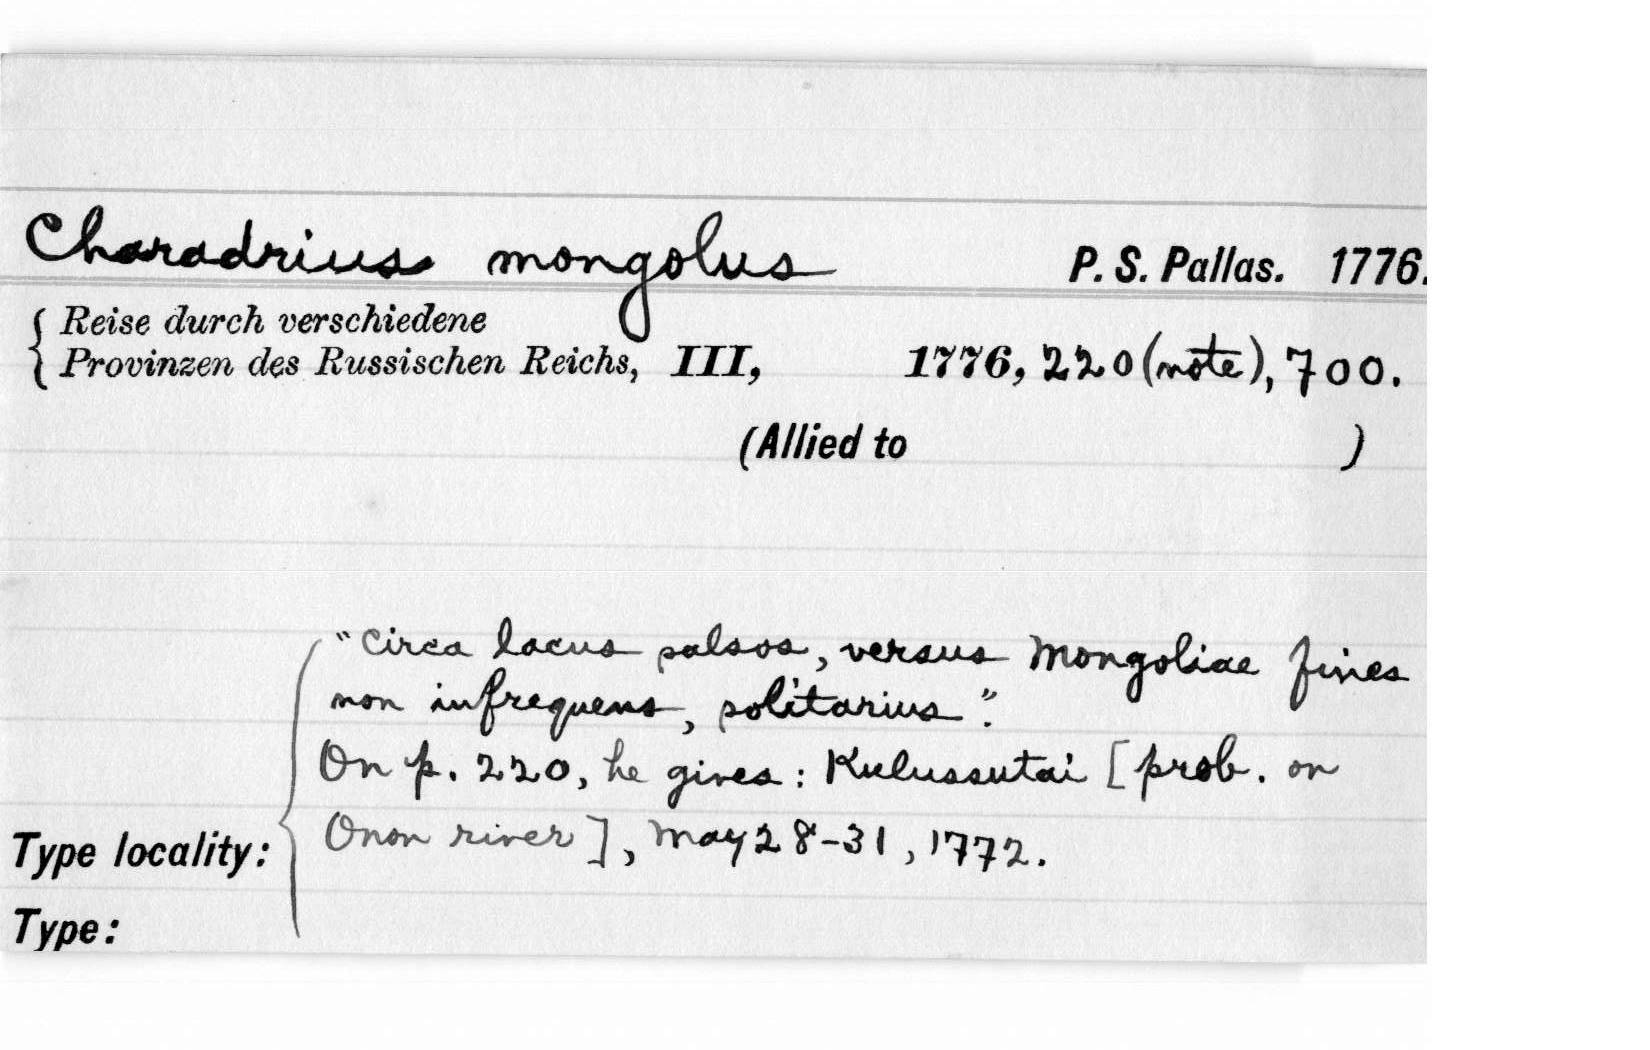 Charadrius mongolus P. S. Pallas. 1776.
Reise durch verschiedene
Provinzen des Russischen Reichs, III, 1776, 220 (note), 700.
(Allied to )
"Circa lacus salsos, versus Mongoliae fines
non infrequens, solitarius".
On p. 220, he gives: Kulussutai [prob. on
Onon river], May 28-31, 1772.
Type locality:
Type: